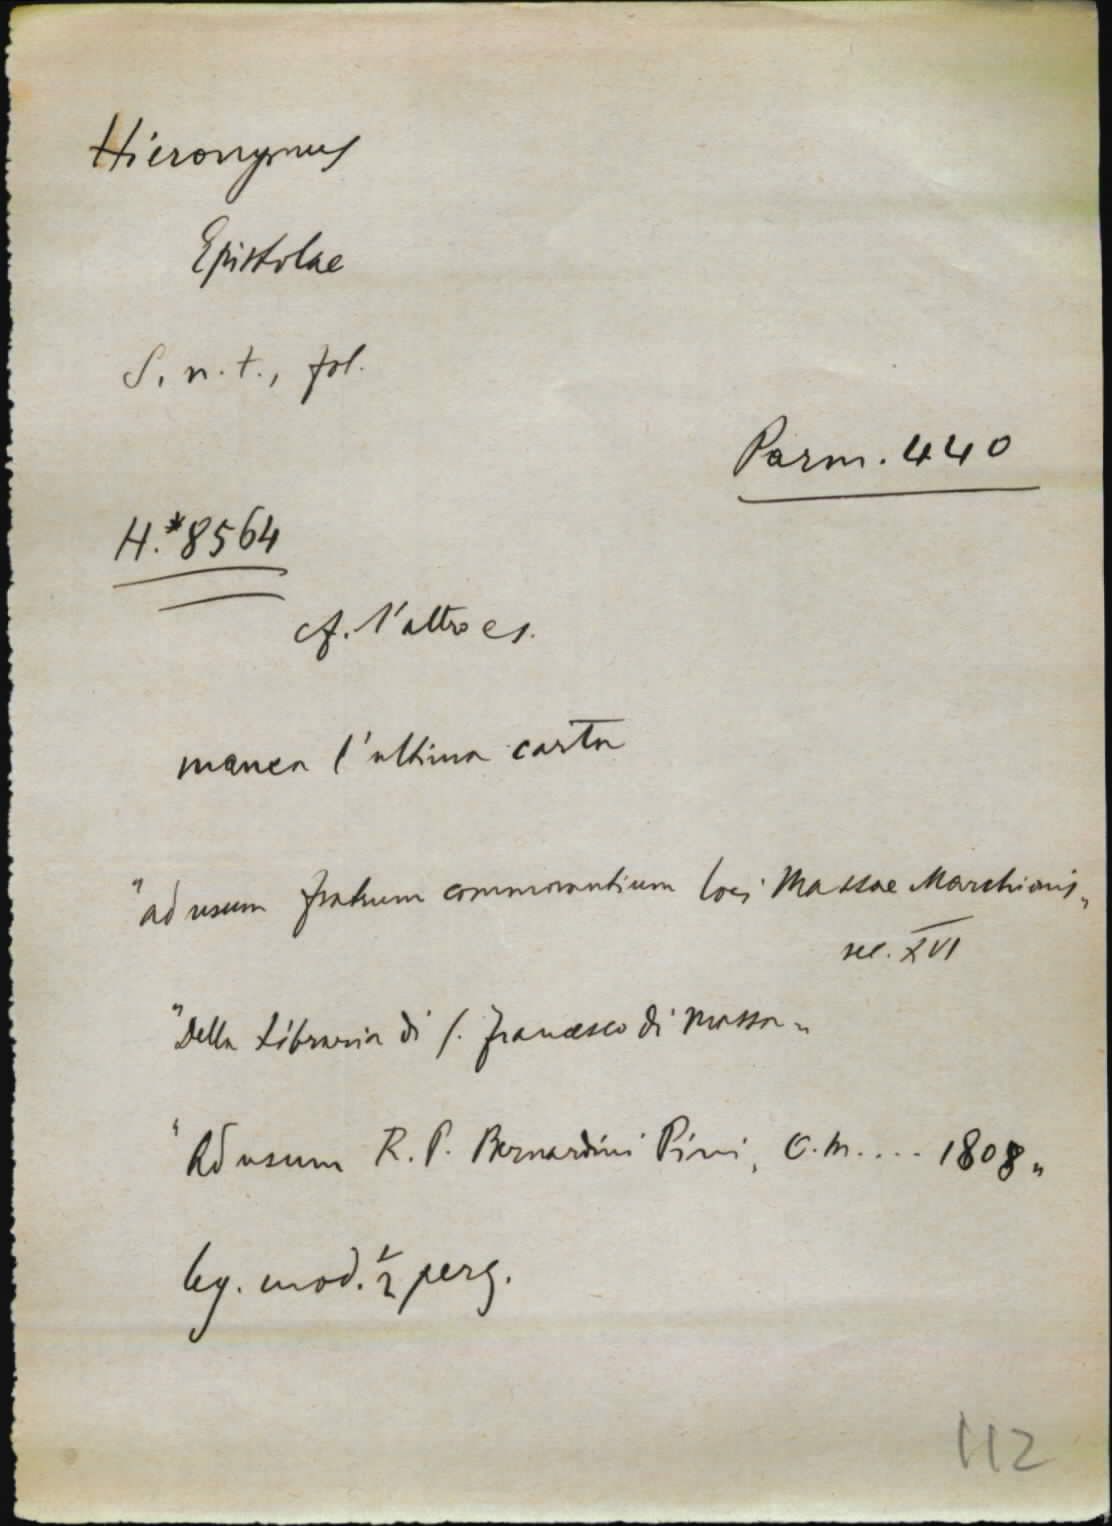 Hieronymus
Epistolae
S. n. t., fol.
Parm. 440
H.*8564
cf. l'altro es.
manca l'ultima carta
"ad usum fratrum commorantium loci Massae Marchionis"
sec. XVI
"Della Libraria di S. Francesco di Massa"
"Ad usum R. P. Bernardini Pini, C. M.... 1808"
leg. mod. ½ perg.
112